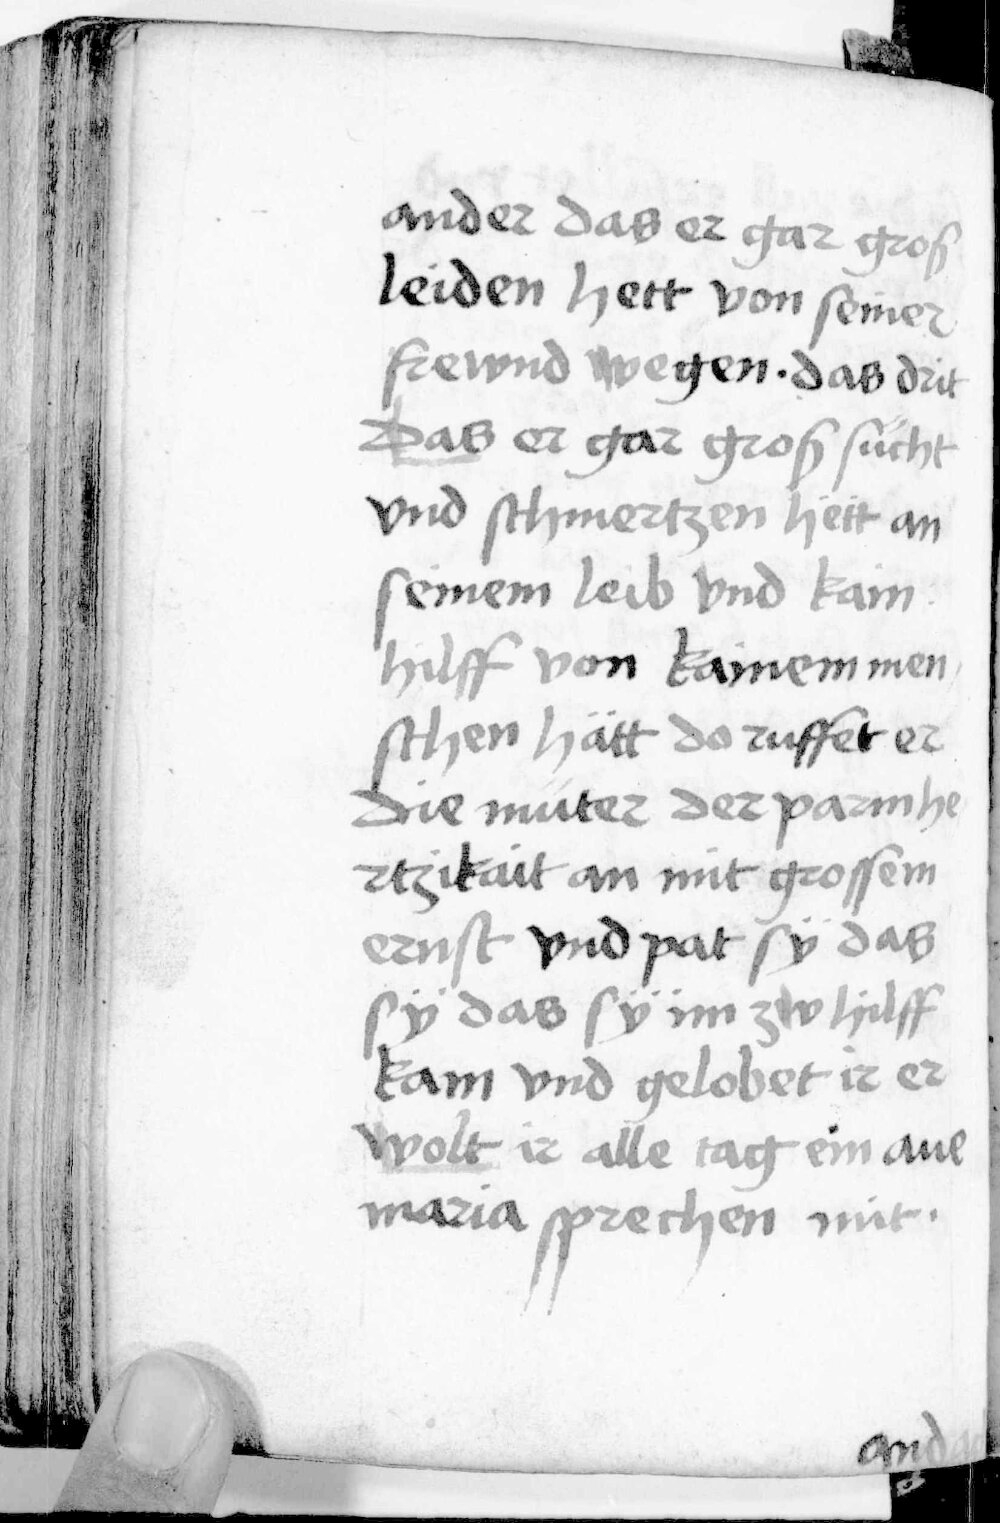 ander das er gar groß
leiden hett von seiner
frewnd wegen. das drit
Das er gar groß sücht
vnd schmertzen hëtt an
seinem leib vnd kain
hilff von kainem men
schen hätt do ruffet er
die müter der parmhe
rtzikait an mit grossem
ernst vnd pat sÿ das
sÿ das sÿ im zw hilff
kam vnd gelobet ir er
wolt ir alle tag ein aue
maria sprechen mit.